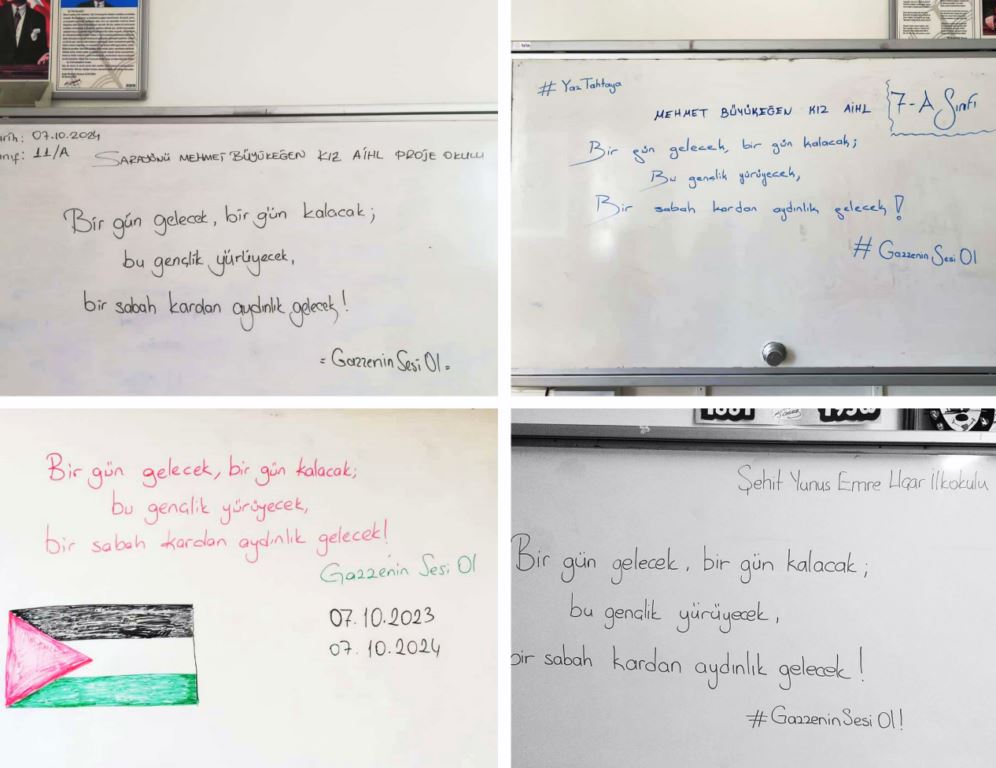 arih: 07.10.2024
nıf: 11/A
SARAYÖNÜ MEHMET BÜYÜKEĞEN KIZ AİHL PROJE OKULU
Bir gün gelecek, bir gün kalacak;
bu gençlik yürüyecek,
bir sabah kardan aydınlık gelecek!
= Gazzenin Sesi Ol =
# Yaz Tahtaya
MEHMET BÜYÜKEĞEN KIZ AİHL
7-A Sınıfı
Bir gün gelecek, bir gün kalacak;
Bu gençlik yürüyecek,
Bir sabah kardan aydınlık gelecek!
# Gazzenin Sesi Ol
Bir gün gelecek, bir gün kalacak;
bu gençlik yürüyecek,
bir sabah kardan aydınlık gelecek!
Gazzenin Sesi Ol
07.10.2023
07.10.2024
Şehit Yunus Emre Uçar İlkokulu
Bir gün gelecek, bir gün kalacak;
bu gençlik yürüyecek,
bir sabah kardan aydınlık gelecek!
#Gazzenin Sesi Ol!